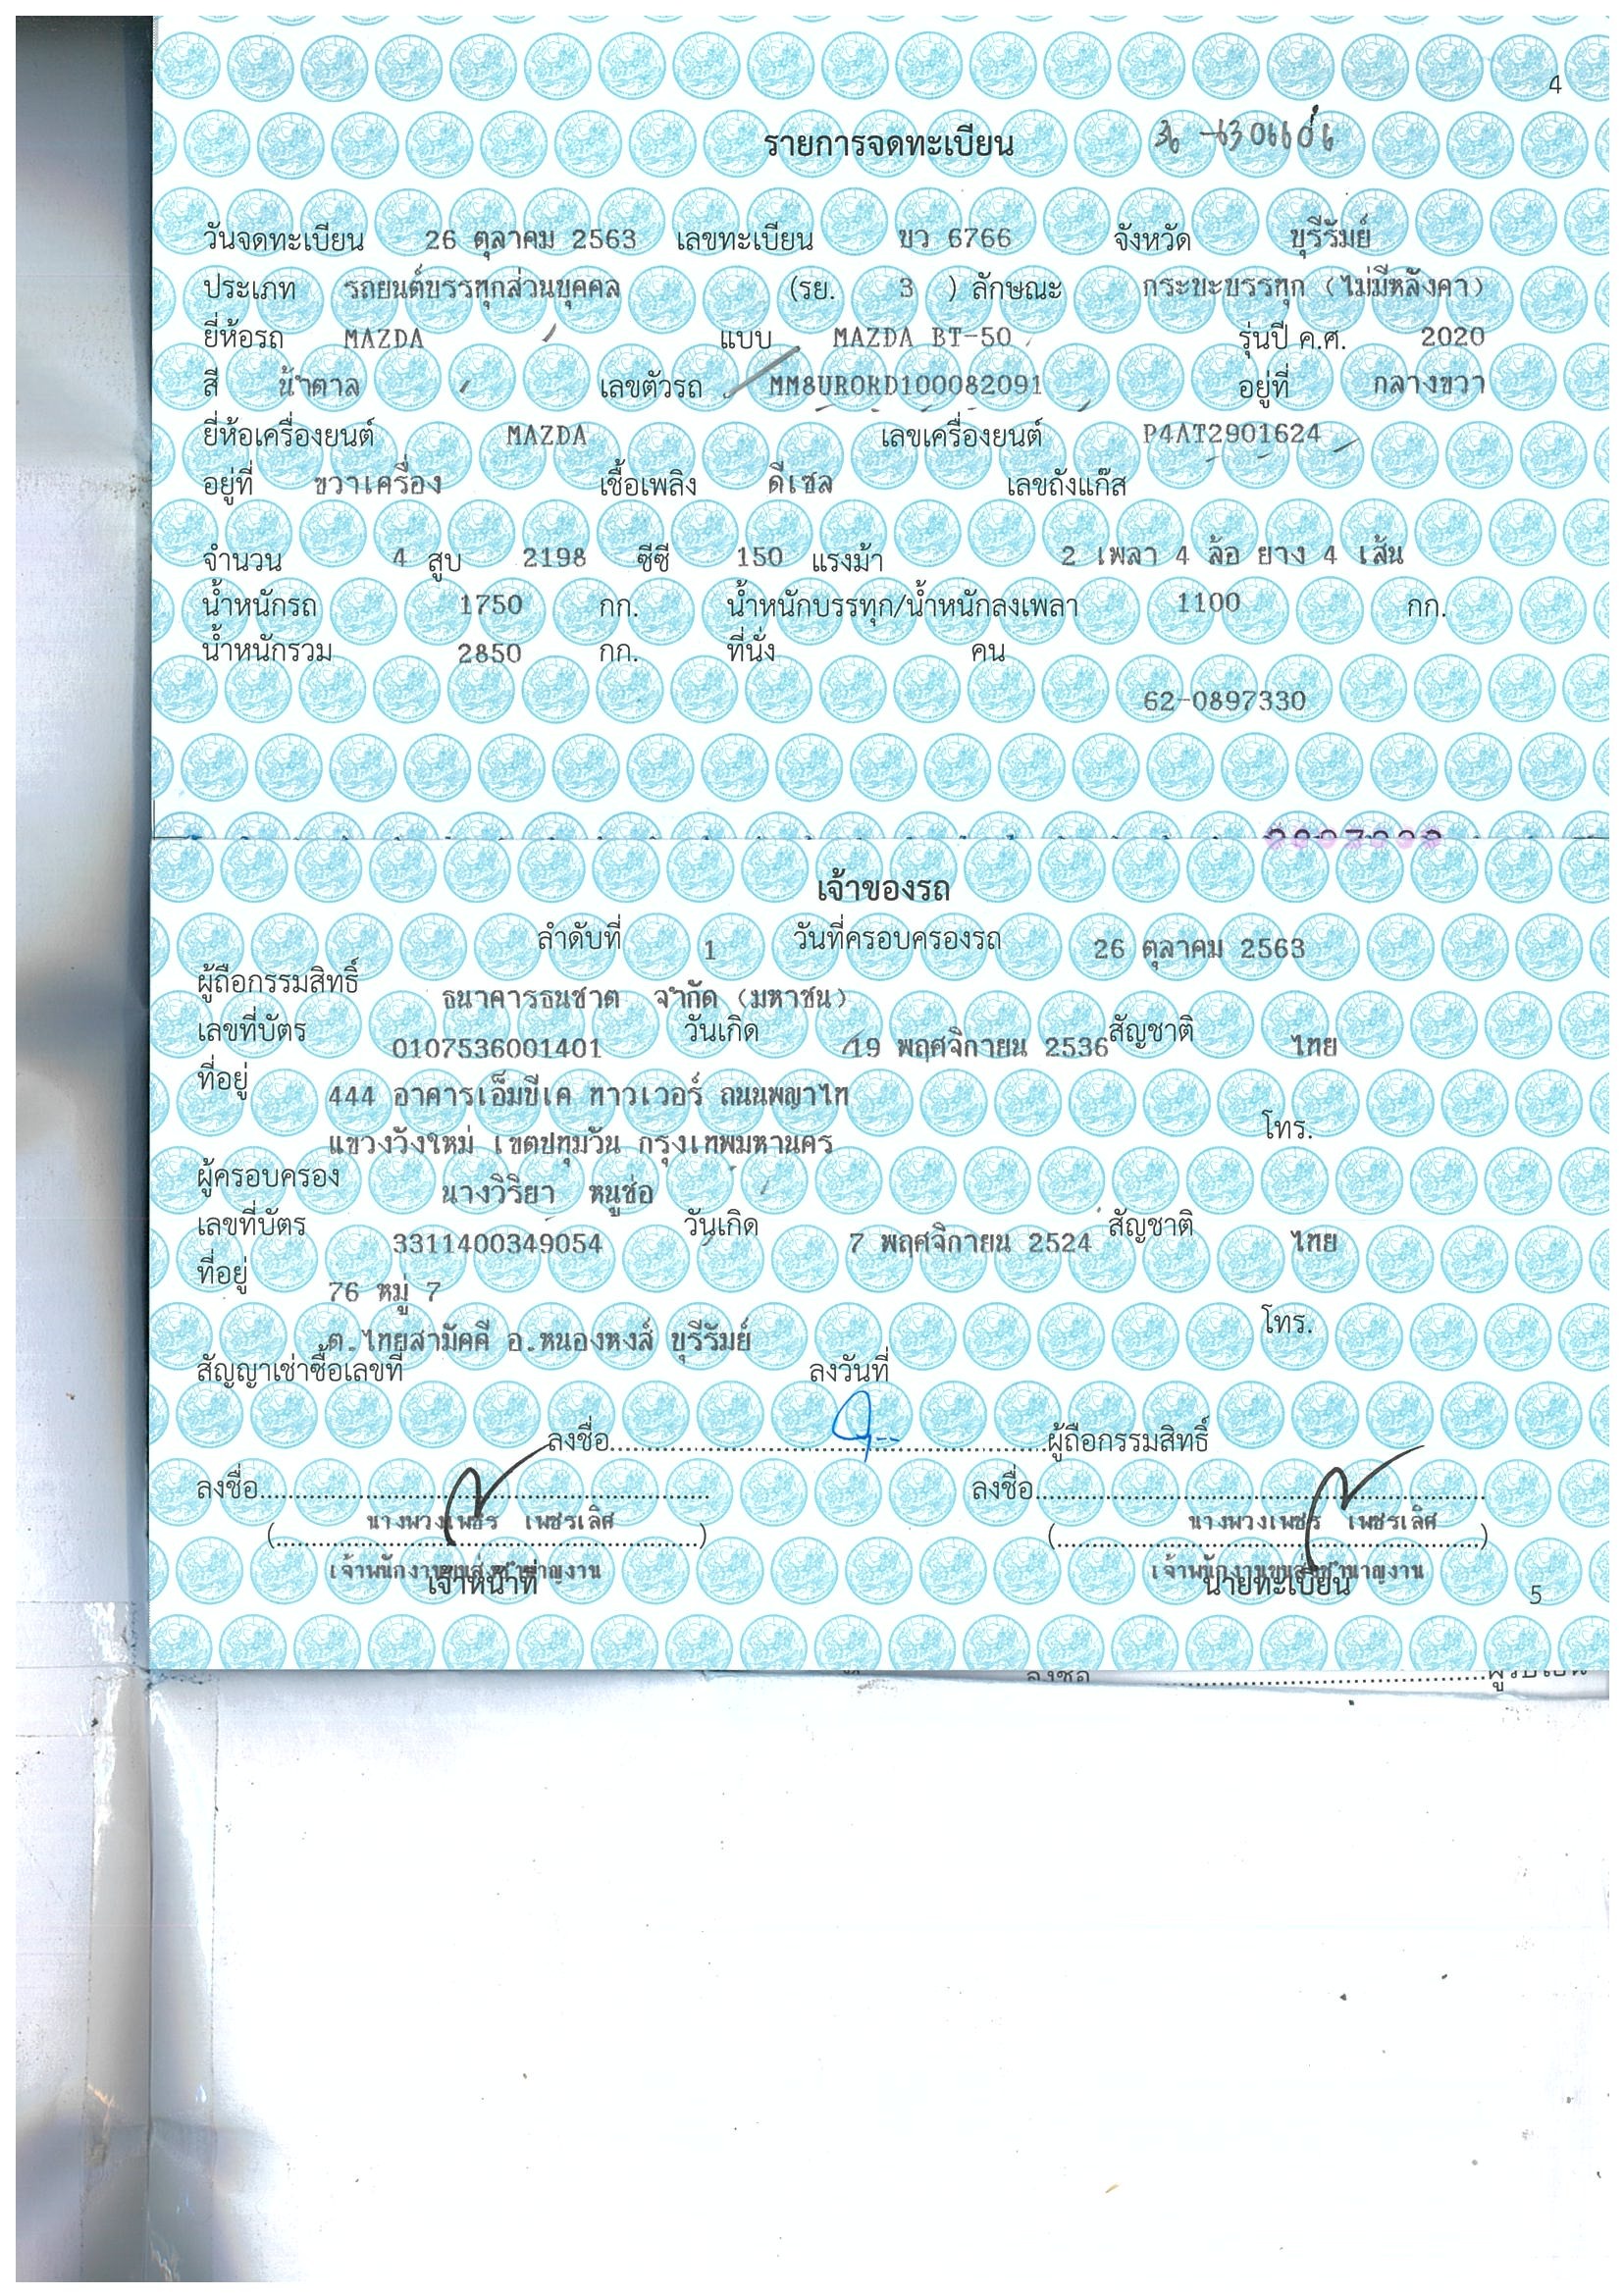 4
รายการจดทะเบียน
วันจดทะเบียน 26 ตุลาคม 2563 เลขทะเบียน ขว 6766 จังหวัด บุรีรัมย์
ประเภท รถยนต์บรรทุกส่วนบุคคล (รย. 3 ) ลักษณะ กระบะบรรทุก (ไม่มีหลังคา)
ยี่ห้อรถ MAZDA แบบ MAZDA BT-50 รุ่นปี ค.ศ. 2020
สี น้ำตาล เลขตัวรถ MM8UR0KD100082091 อยู่ที่ กลางขวา
ยี่ห้อเครื่องยนต์ MAZDA เลขเครื่องยนต์ P4AT2901624
อยู่ที่ ขวาเครื่อง เชื้อเพลิง ดีเซล เลขถังแก๊ส
จำนวน 4 สูบ 2198 ซีซี 150 แรงม้า 2 เพลา 4 ล้อ ยาง 4 เส้น
น้ำหนักรถ 1750 กก. น้ำหนักบรรทุก/น้ำหนักลงเพลา 1100 กก.
น้ำหนักรวม 2850 กก. ที่นั่ง คน
62-0897330
เจ้าของรถ
ลำดับที่ 1 วันที่ครอบครองรถ 26 ตุลาคม 2563
ผู้ถือกรรมสิทธิ์ ธนาคารธนชาต จำกัด (มหาชน)
เลขที่บัตร 0107536001401 วันเกิด 19 พฤศจิกายน 2536 สัญชาติ ไทย
ที่อยู่ 444 อาคารเอ็มบีเค ทาวเวอร์ ถนนพญาไท
แขวงวังใหม่ เขตปทุมวัน กรุงเทพมหานคร โทร.
ผู้ครอบครอง นางวิริยา หนูช่อ
เลขที่บัตร 3311400349054 วันเกิด 7 พฤศจิกายน 2524 สัญชาติ ไทย
ที่อยู่ 76 หมู่ 7
ต.ไทยสามัคคี อ.หนองหงส์ บุรีรัมย์ โทร.
สัญญาเช่าซื้อเลขที่ ลงวันที่
ลงชื่อ ผู้ถือกรรมสิทธิ์
ลงชื่อ ลงชื่อ
(นางพวงเพชร เพชรเลิศ) (นางพวงเพชร เพชรเลิศ)
เจ้าพนักงานขนส่งชำนาญงาน เจ้าพนักงานขนส่งชำนาญงาน
เจ้าหน้าที่ นายทะเบียน
5